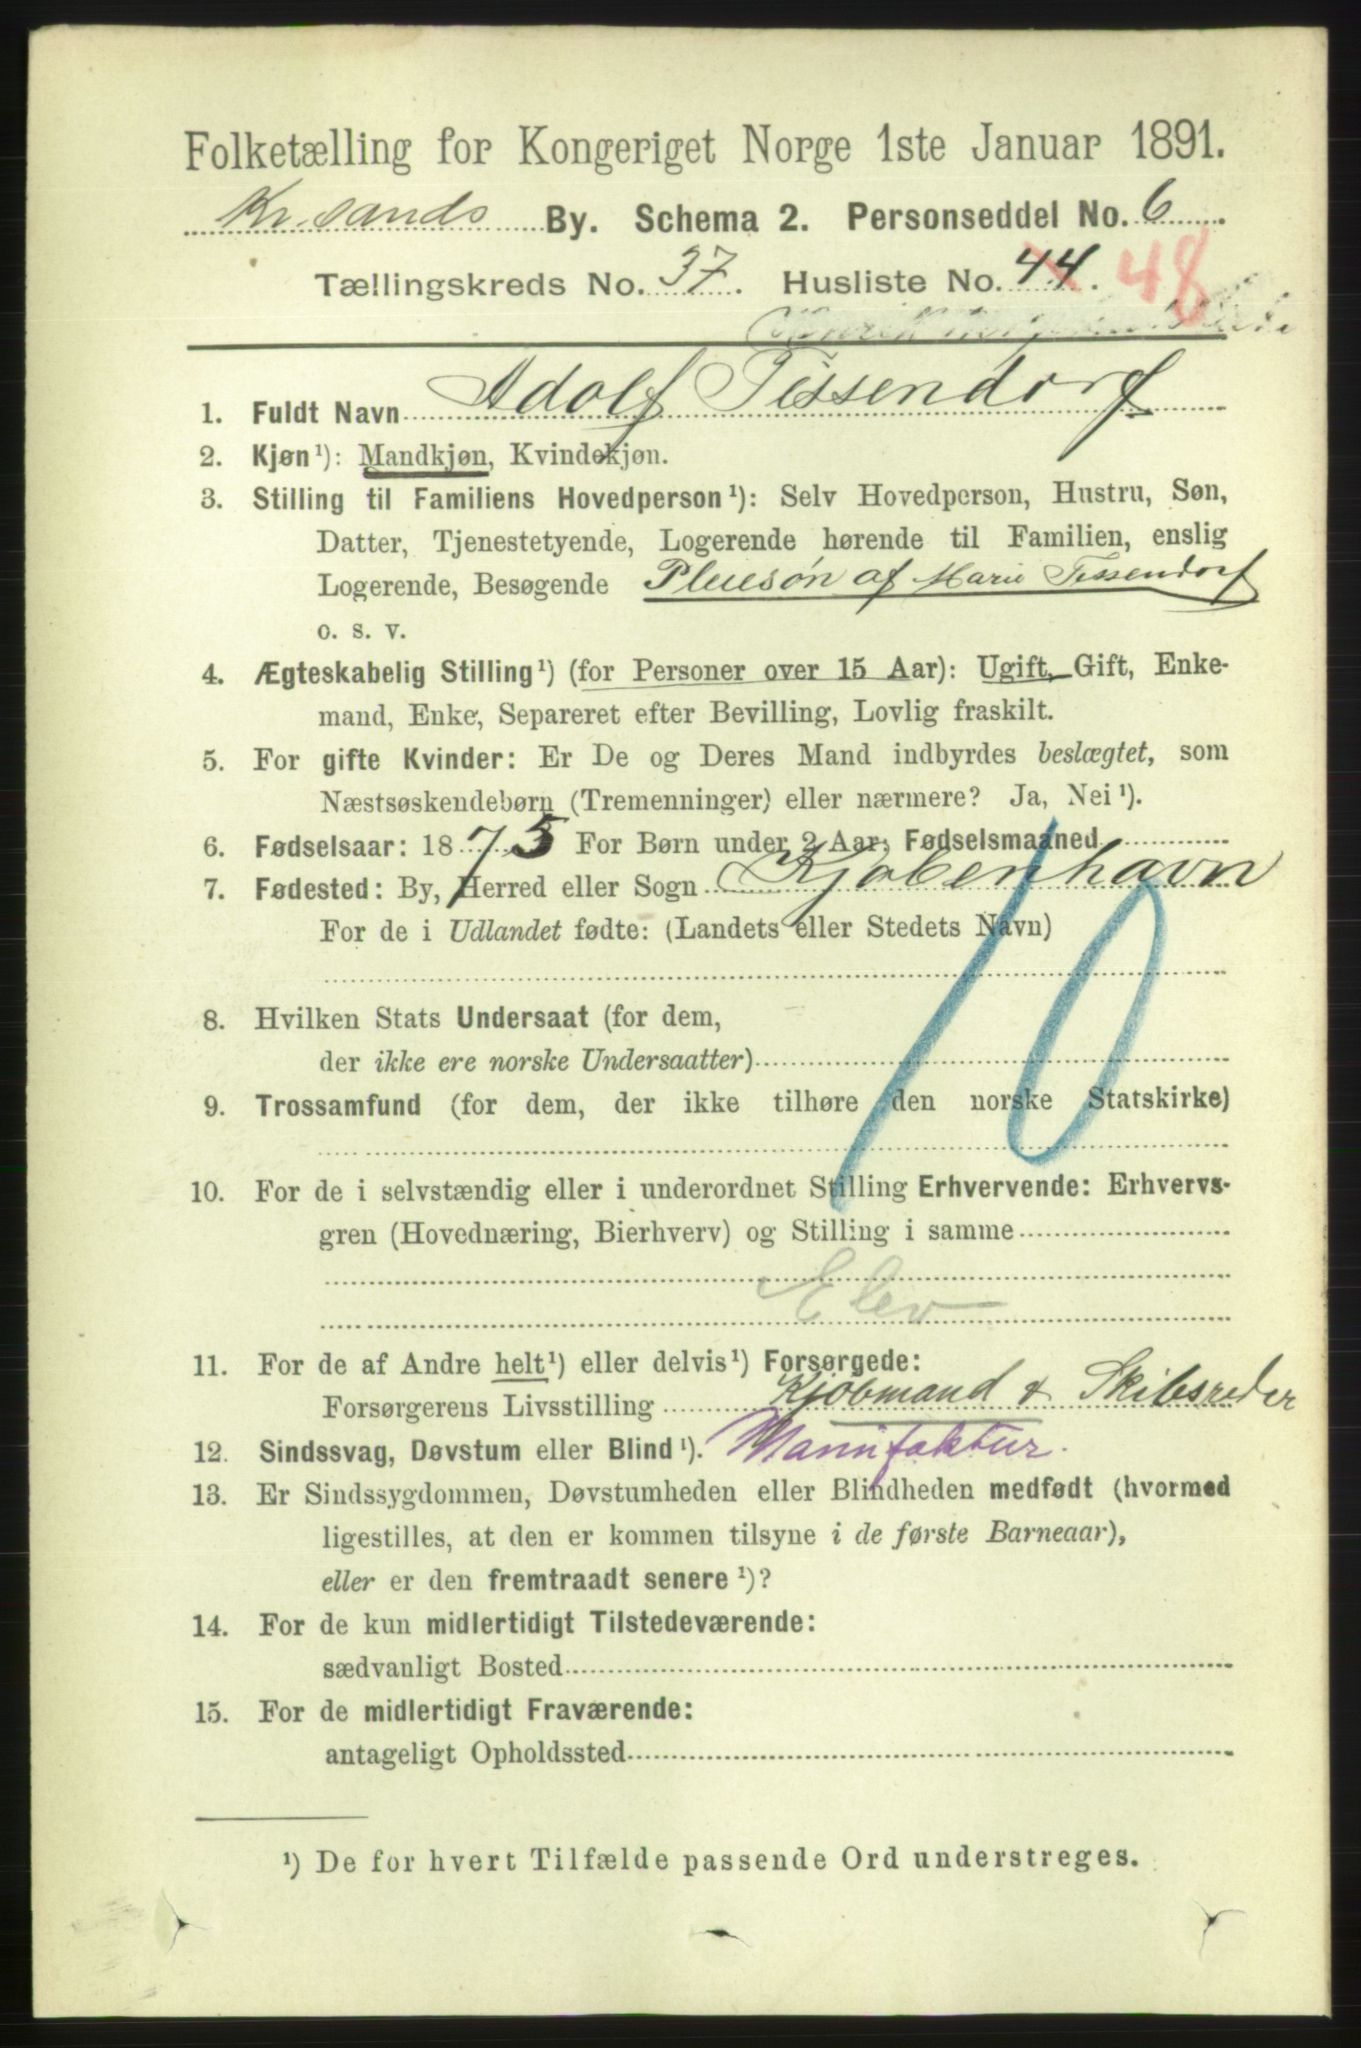 Folketælling for Kongeriget Norge 1ste Januar 1891.
Kr.sands By. Schema 2. Personseddel No. 6
Tællingskreds No. 37. Husliste No. 44. 48
1. Fuldt Navn Adolf Tissendorf
2. Kjøn¹): Mandkjøn, Kvindekjøn.
3. Stilling til Familiens Hovedperson¹): Selv Hovedperson, Hustru, Søn,
Datter, Tjenestetyende, Logerende hørende til Familien, enslig
Logerende, Besøgende Pleiesøn af Marie Tissendorf
o. s. v.
4. Ægteskabelig Stilling¹) (for Personer over 15 Aar): Ugift, Gift, Enke-
mand, Enke, Separeret efter Bevilling, Lovlig fraskilt.
5. For gifte Kvinder: Er De og Deres Mand indbyrdes beslægtet, som
Næstsøskendebørn (Tremenninger) eller nærmere? Ja, Nei¹).
6. Fødselsaar: 1875 For Børn under 2 Aar: Fødselsmaaned
7. Fødested: By, Herred eller Sogn Kjøbenhavn
For de i Udlandet fødte: (Landets eller Stedets Navn)
10
8. Hvilken Stats Undersaat (for dem,
der ikke ere norske Undersaatter)
9. Trossamfund (for dem, der ikke tilhøre den norske Statskirke)
10. For de i selvstændig eller i underordnet Stilling Erhvervende: Erhvervs-
gren (Hovednæring, Bierhverv) og Stilling i samme
Elev
11. For de af Andre helt¹) eller delvis¹) Forsørgede:
Forsørgerens Livsstilling Kjøbmand & Skibsreder
12. Sindssvag, Døvstum eller Blind¹). Manufaktur.
13. Er Sindssygdommen, Døvstumheden eller Blindheden medfødt (hvormed
ligestilles, at den er kommen tilsyne i de første Barneaar),
eller er den fremtraadt senere¹)?
14. For de kun midlertidigt Tilstedeværende:
sædvanligt Bosted
15. For de midlertidigt Fraværende:
antageligt Opholdssted
¹) De for hvert Tilfælde passende Ord understreges.